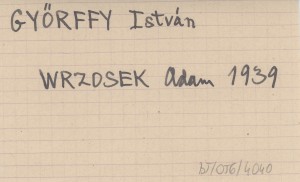 GYÖRFFY István
WRZOSEK Adam 1939
bT/OTG/4040